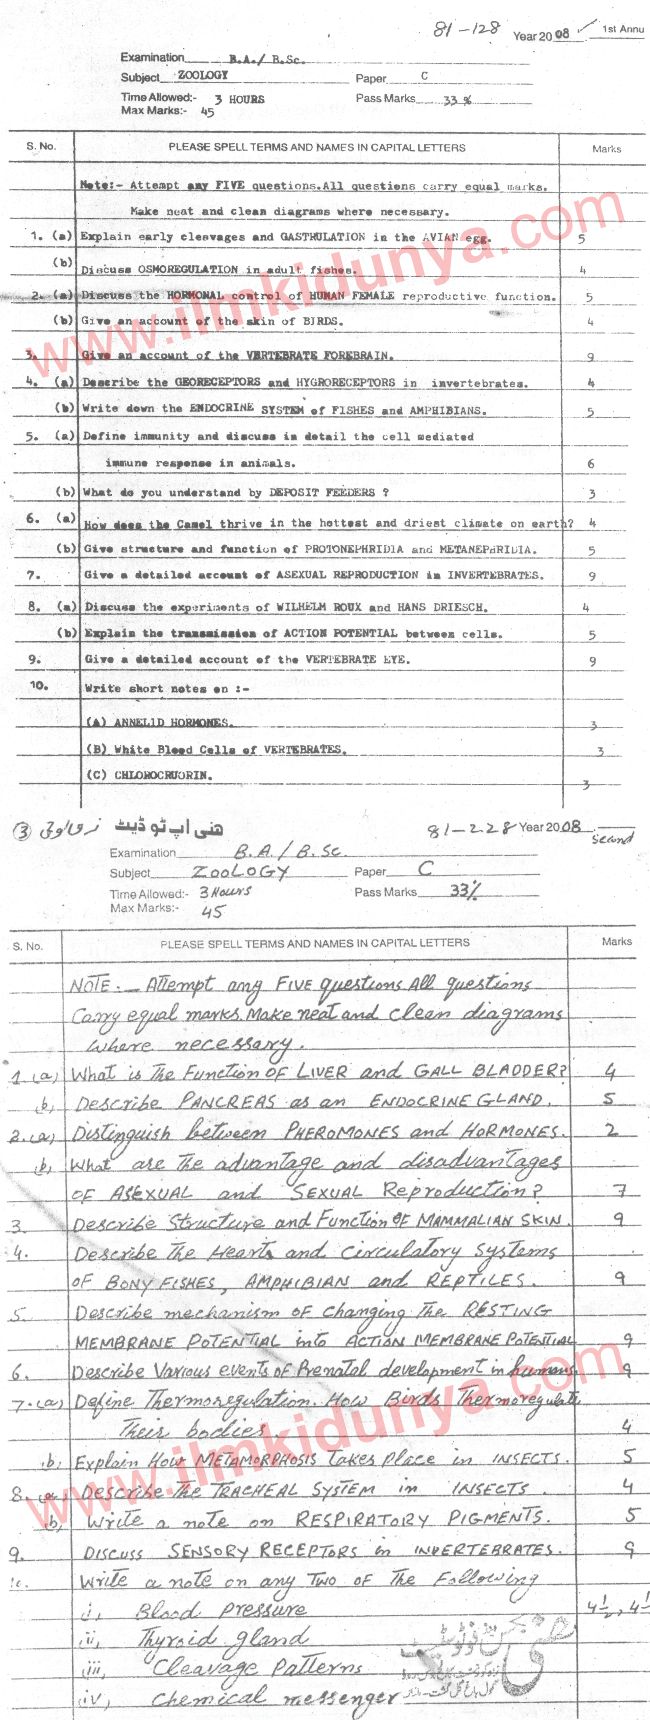 81-128 Year 2008 1st Annu
Examination B.A./B.Sc.
Subject ZOOLOGY Paper C
Time Allowed:- 3 HOURS Pass Marks 33%
Max Marks:- 45
S. No. PLEASE SPELL TERMS AND NAMES IN CAPITAL LETTERS Marks
Note:- Attempt any FIVE questions.All questions carry equal marks.
Make neat and clean diagrams where necessary.
1. (a) Explain early cleavages and GASTRULATION in the AVIAN egg. 5
(b) Discuss OSMOREGULATION in adult fishes. 4
2. (a) Discuss the HORMONAL control of HUMAN FEMALE reproductive function. 5
(b) Give an account of the skin of BIRDS. 4
3. Give an account of the VERTEBRATE FOREBRAIN. 9
4. (a) Describe the GEORECEPTORS and HYGRORECEPTORS in invertebrates. 4
(b) Write down the ENDOCRINE SYSTEM of FISHES and AMPHIBIANS. 5
5. (a) Define immunity and discuss in detail the cell mediated
immune response in animals. 6
(b) What do you understand by DEPOSIT FEEDERS ? 3
6. (a) How does the Camel thrive in the hottest and driest climate on earth? 4
(b) Give structure and function of PROTONEPHRIDIA and METANEPHRIDIA. 5
7. Give a detailed account of ASEXUAL REPRODUCTION in INVERTEBRATES. 9
8. (a) Discuss the experiments of WILHELM ROUX and HANS DRIESCH. 4
(b) Explain the transmission of ACTION POTENTIAL between cells. 5
9. Give a detailed account of the VERTEBRATE EYE. 9
10. Write short notes on :-
(A) ANNELID HORMONES. 3
(B) White Blood Cells of VERTEBRATES. 3
(C) CHLOROCRUORIN. 3
www.ilmkidunya.com
3 ہنی اپ ٹو ڈیٹ 81-228 Year 2008 Second
Examination B.A/B.Sc.
Subject ZOOLOGY Paper C
Time Allowed:- 3 Hours Pass Marks 33%
Max Marks:- 45
S. No. PLEASE SPELL TERMS AND NAMES IN CAPITAL LETTERS Marks
NOTE.- Attempt any FIVE questions All questions
Carry equal marks. Make neat and clean diagrams
where necessary.
1.(a) What is the Function OF LIVER and GALL BLADDER? 4
b, Describe PANCREAS as an ENDOCRINE GLAND. 5
2.(a) Distinguish between PHEROMONES and HORMONES. 2
b, What are the advantage and disadvantages
OF ASEXUAL and SEXUAL Reproduction? 7
3. Describe Structure and Function OF MAMMALIAN SKIN. 9
4. Describe The Hearts and Circulatory Systems
OF BONY FISHES, AMPHIBIAN and REPTILES. 9
5. Describe mechanism OF changing The RESTING
MEMBRANE POTENTIAL into ACTION MEMBRANE POTENTIAL 9
6. Describe Various events OF Prenatal development in humans. 9
7.(a) Define Thermoregulation. How Birds Thermoregulate
Their bodies. 4
b, Explain How METAMORPHOSIS Takes Place in INSECTS. 5
8.(a) Describe The TRACHEAL SYSTEM in INSECTS. 4
b, Write a note on RESPIRATORY PIGMENTS. 5
9. DISCUSS SENSORY RECEPTORS in INVERTEBRATES. 9
10. Write a note on any TWO OF The Following
i, Blood pressure 4½, 4½
ii, Thyroid gland
iii, Cleavage Patterns
iv, Chemical messenger
www.ilmkidunya.com